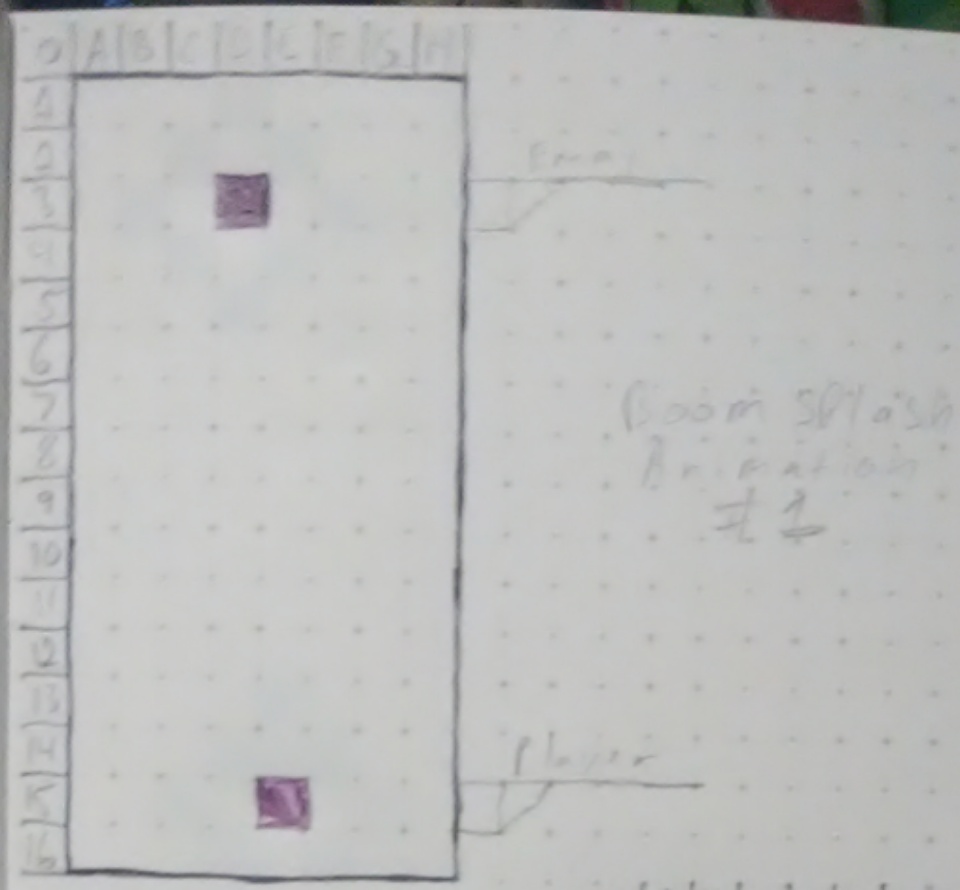 0 A B C D E F G H
1
2
3
4
5
6
7
8
9
10
11
12
13
14
15
16
Player
Boom SPlash
Animation
#1